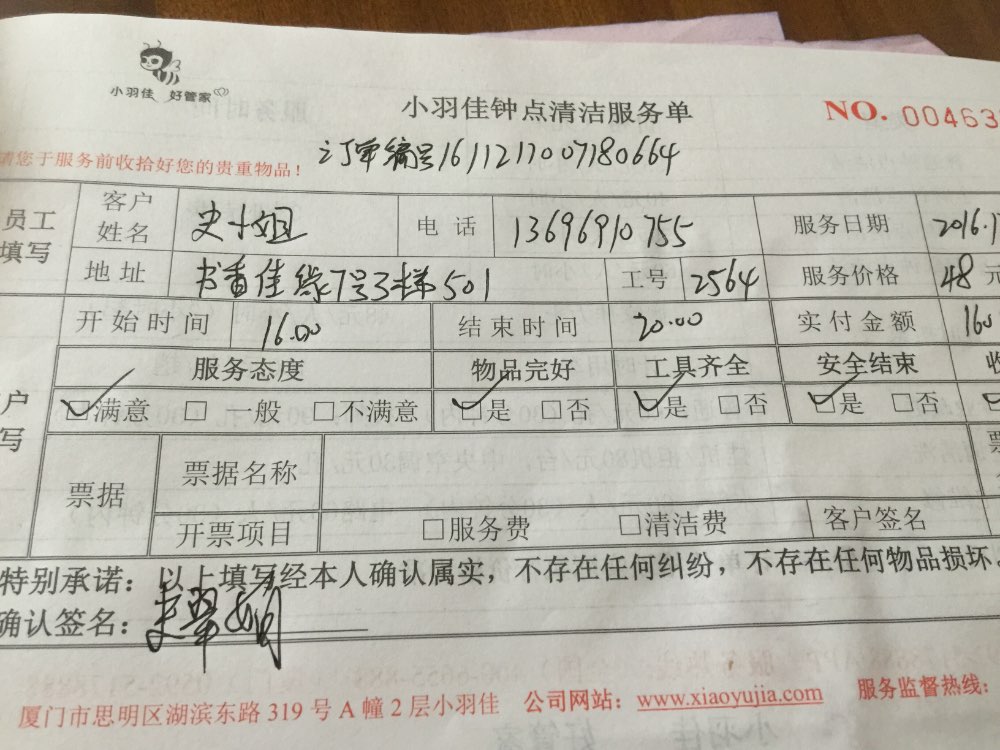 小羽佳 好管家
小羽佳钟点清洁服务单
NO. 00463
请您于服务前收拾好您的贵重物品！
订单编号1611217007180664
员工填写 客户姓名 史小姐 电话 13696910755 服务日期 2016.1
地址 书香佳缘7号3梯501 工号 2564 服务价格 48元
开始时间 16.00 结束时间 20.00 实付金额 160
服务态度 物品完好 工具齐全 安全结束
☑满意 □一般 □不满意 ☑是 □否 ☑是 □否 ☑是 □否
票据 票据名称
开票项目 □服务费 □清洁费 客户签名
特别承诺：以上填写经本人确认属实，不存在任何纠纷，不存在任何物品损坏。
确认签名：
厦门市思明区湖滨东路319号A幢2层小羽佳 公司网站：www.xiaoyujia.com 服务监督热线：